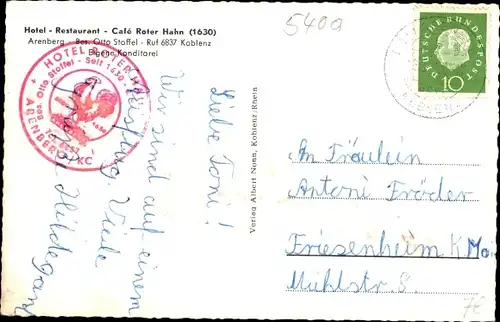 Hotel - Restaurant - Café Roter Hahn (1630)
Arenberg - Bes. Otto Stoffel - Ruf 6837 Koblenz
Eigene Konditorei
5400
DEUTSCHE BUNDESPOST
10
HOTEL ROTER HAHN
Bes. Otto Stoffel - Seit 1630
ARENBERG
Liebe Toni!
Wir sind auf einem
Ausflug. Viele
Grüße Hildegard
Verlag Albert Nunn, Koblenz/Rhein
An Fräulein
Antoni Fröder
Friesenheim K.
Mühlstr. 8.